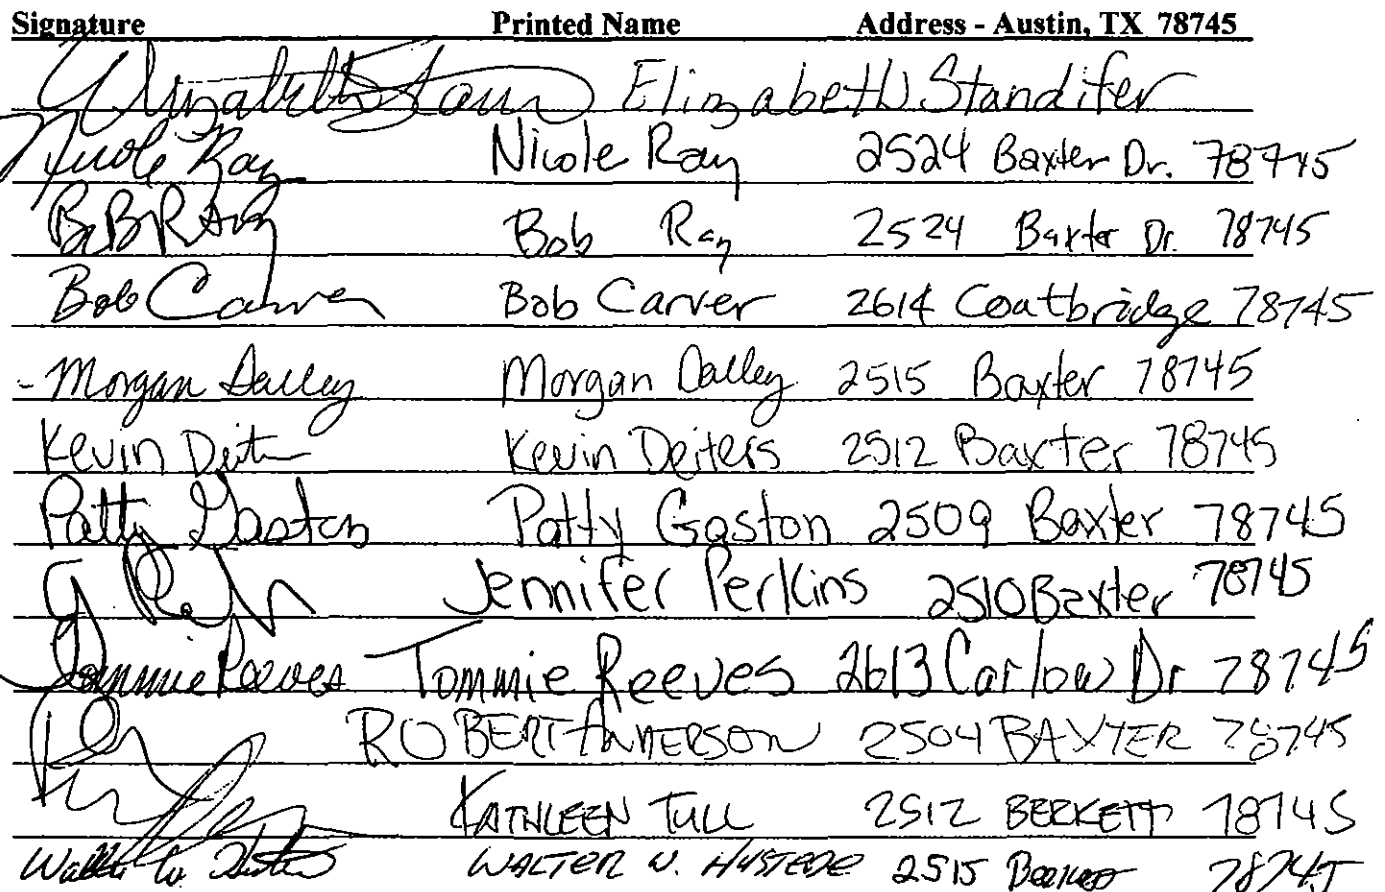 Signature Printed Name Address - Austin, TX 78745
Elizabeth Stan Elizabeth Standifer
Nicole Ray Nicole Ray 2524 Baxter Dr. 78745
Bob Ray 2524 Baxter Dr. 78745
Bob Carver Bob Carver 2614 Coatbridge 78745
- Morgan Dalley Morgan Dalley 2515 Baxter 78745
Kevin Deit Kevin Deiters 2512 Baxter 78745
Patty Gaston Patty Gaston 2509 Baxter 78745
Jennifer Perkins 2510 Baxter 78745
Tommie Reeves Tommie Reeves 2613 Carlow Dr 78745
ROBERT ANDERSON 2504 BAXTER 78745
KATHLEEN TULL 2512 BERKETT 78745
WALTER W. HUSTEDE 2515 78745